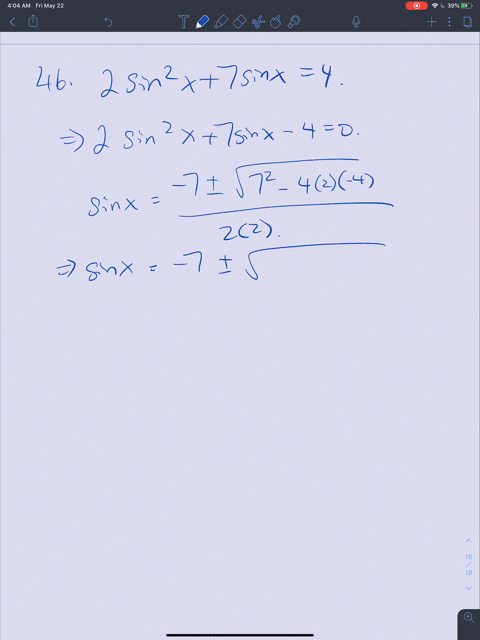 4:04 AM Fri May 22 39%
46. 2 sin²x + 7 sinx = 4.
⇒ 2 sin²x + 7sinx - 4 = 0.
sinx = (-7 ± √(7² - 4(2)(-4))) / 2(2).
⇒ sinx = -7 ± √
16
/
18